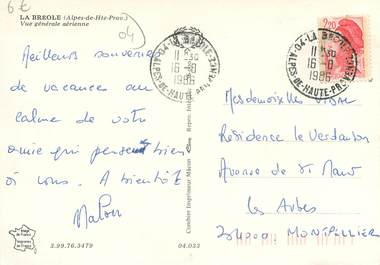 6€
LA BREOLE (Alpes-de-Hte-Prov.)
Vue générale aérienne
04
LA BREOLE
ALPES-DE-HAUTE-PROVENCE
11 H 30
16-8
1986
LA BREOLE
ALPES-DE-HAUTE-PROVENCE
11 H 30
16-8
1986
2,20
Meilleurs souvenirs
de vacances au
calme de votre
amie qui pense bien
à vous. A bientôt
Mesdemoiselles VIDAL
Résidence le Verdanson
Avenue de St Maur
les Aubes
34000 MONTPELLIER
Combier Imprimeur Mâcon
3.99.76.3479
04.033